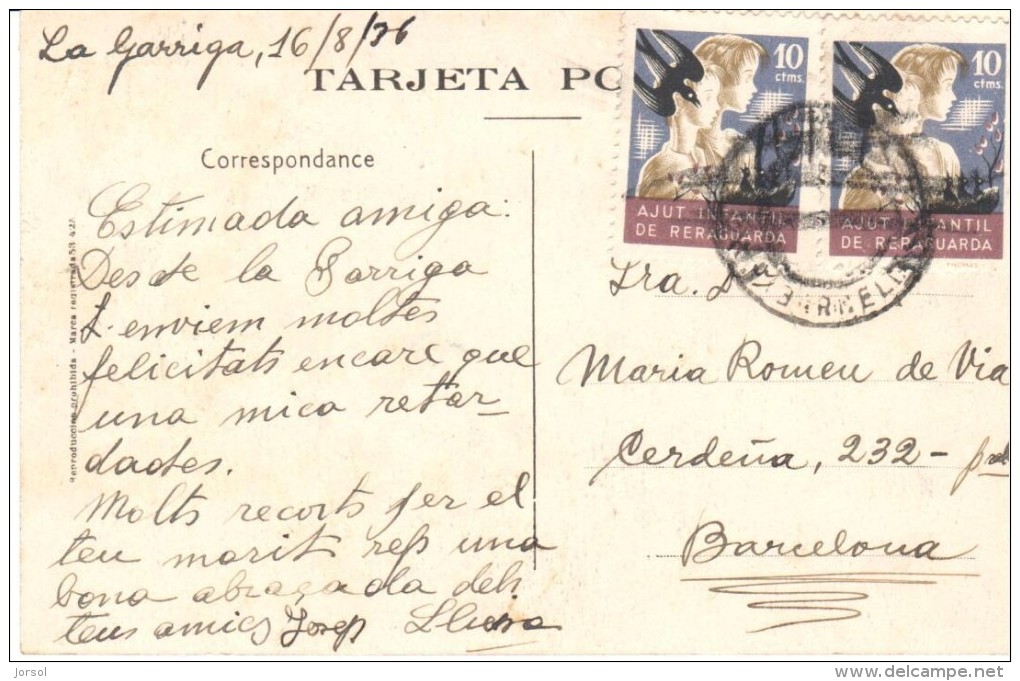 La Garriga, 16/8/36
TARJETA PO
10
ctms.
AJUT INFANTIL
DE RERAGUARDA
10
ctms.
AJUT INFANTIL
DE RERAGUARDA
Correspondance
Estimada amiga:
Desde la Garriga
t. enviem moltes
felicitats encare que
una mica retar-
dades.
Molts recorts per el
teu marit rep una
bona abraçada dels
teus amics Josep Lluisa
Reproducción prohibida - Marca registrada
Sra. Dª
Maria Romeu de Via
Cerdeña, 232 - pral
Barcelona
jorsol
www.delcampe.net